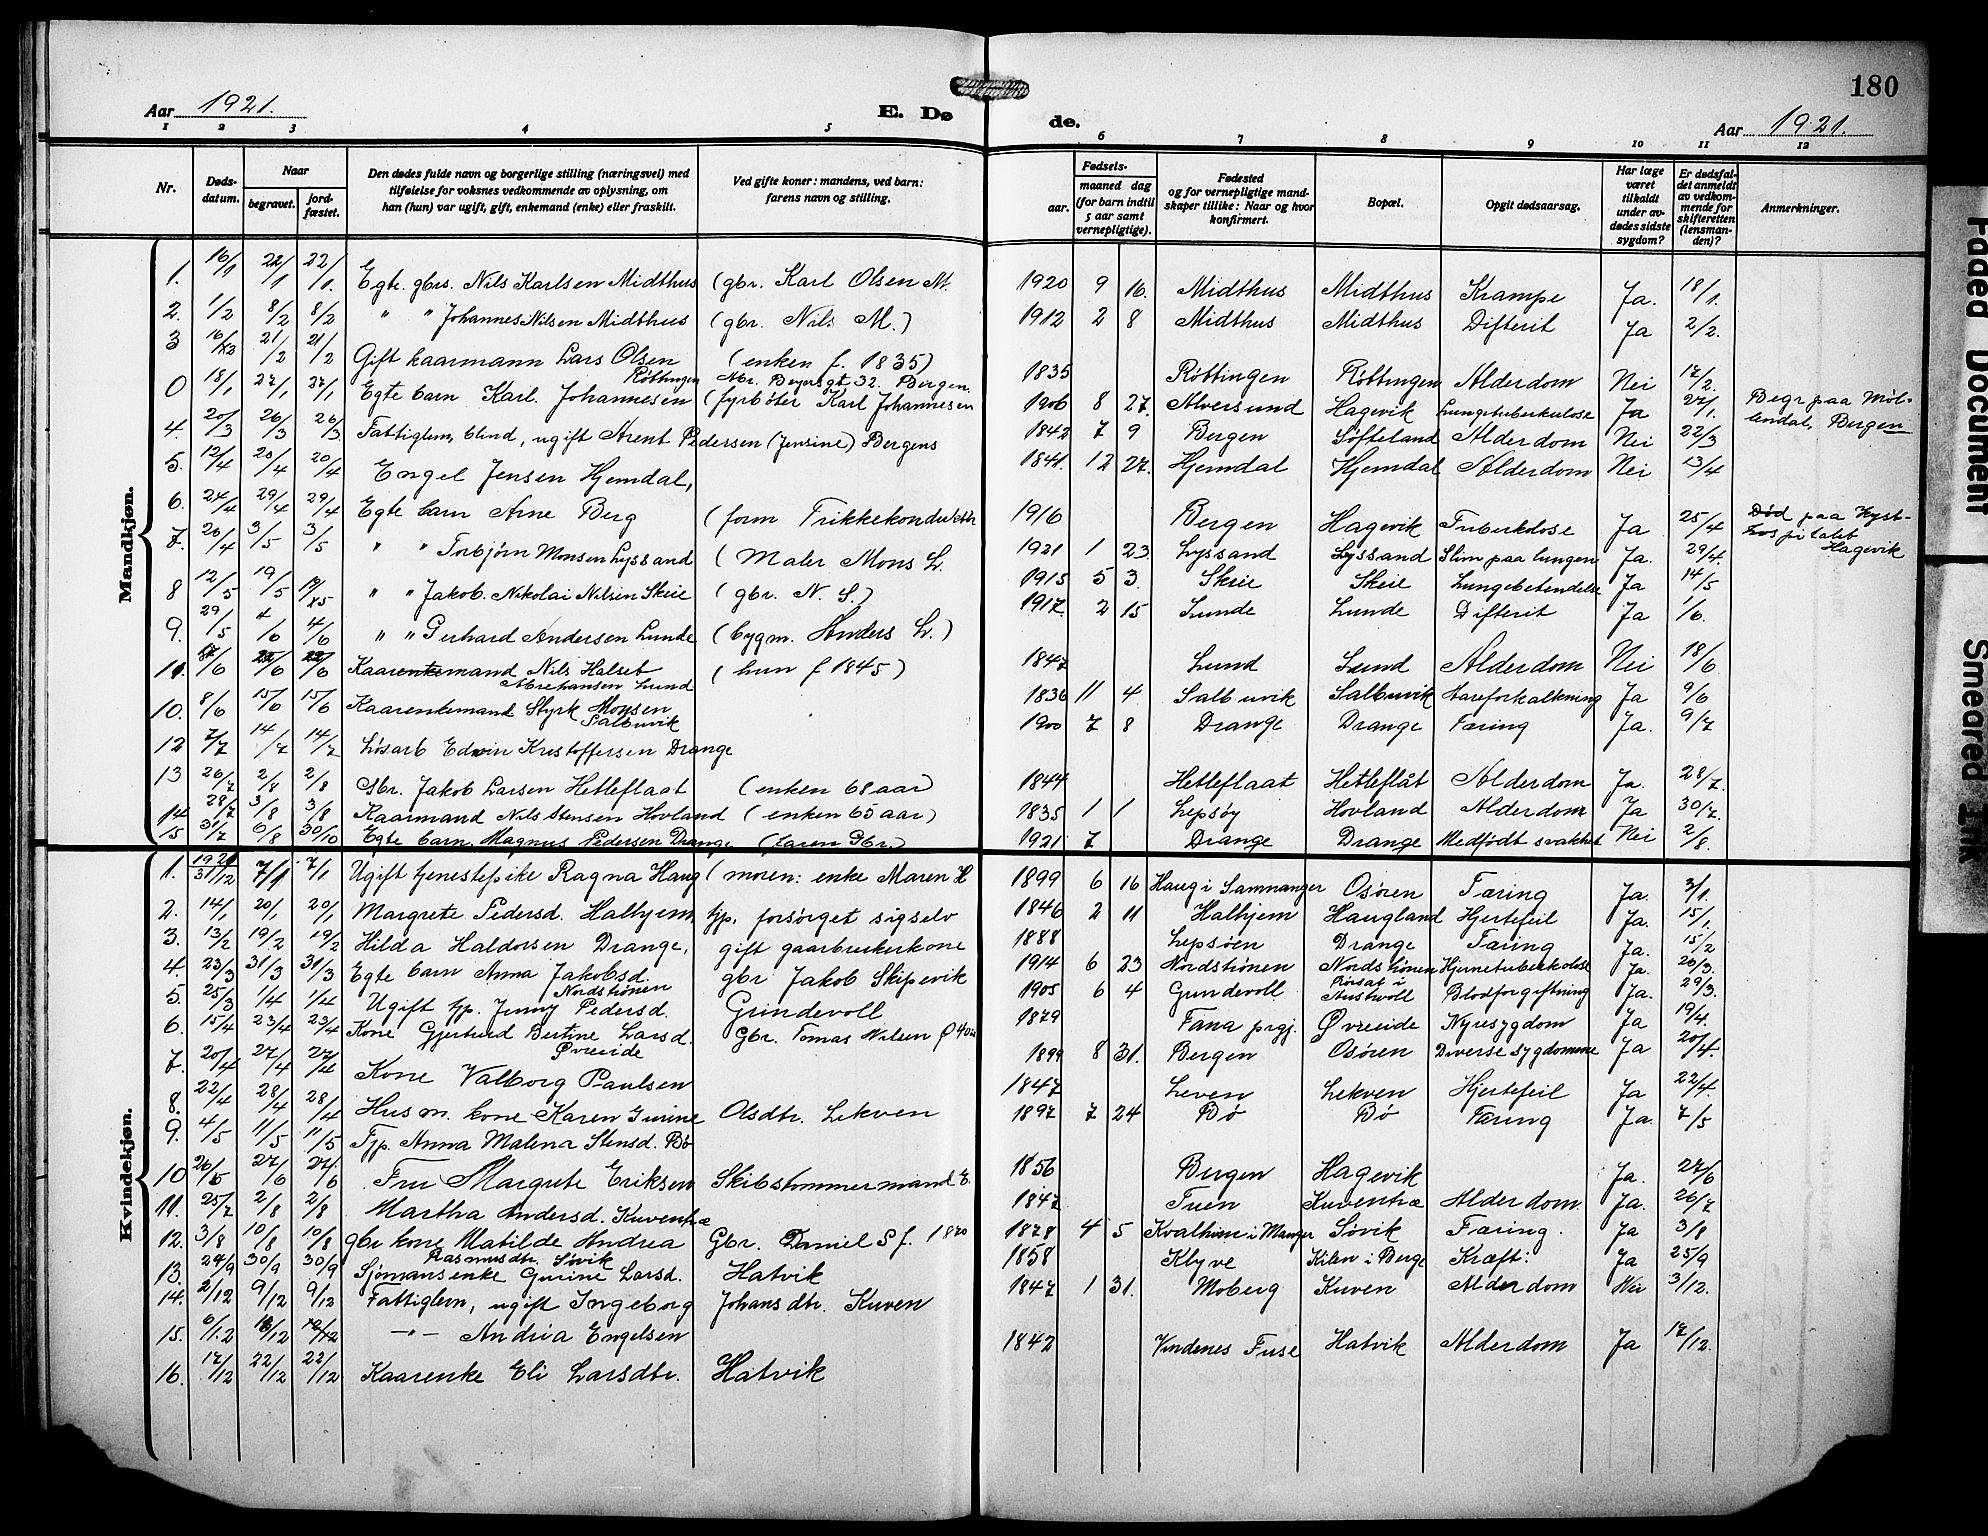 180
Aar 1921.
E. Dø
de.
Aar 1921.
1 2 3 4 5 6 7 8 9 10 11 12
Nr.
Døds-
datum.
Naar
begravet.
jord-
fæstet.
Den dødes fulde navn og borgerlige stilling (næringsvei) med
tilføielse for voksnes vedkommende av oplysning, om
han (hun) var ugift, gift, enkemand (enke) eller fraskilt.
Ved gifte koner: mandens, ved barn:
farens navn og stilling.
Fødsels-
aar.
maaned dag
(for barn indtil
5 aar samt
vernepligtige).
Fødested
og for vernepligtige mand-
skaper tillike: Naar og hvor
konfirmert.
Bopæl.
Opgit dødsaarsag.
Har læge
været
tilkaldt
under av-
dødes sidste
sygdom?
Er dødsfal-
det anmeldt
av vedkom-
mende for
skifteretten
(lensman-
den)?
Anmerkninger.
Mandkjøn.
1. 16/1 22/1 22/1. Egte. gbrs. Nils Karlsen Midthus (gbr. Karl Olsen M. 1920 9 16. Midthus Midthus Krampe Ja. 18/1.
2. 1/2 8/2 8/2 " " Johannes Nilsen Midthus (gbr. Nils M.) 1912 2 8 Midthus Midthus Difterit Ja 2/2.
3 21/2 21/2 Gift kaarmann Lars Olsen Røttingen (enken f. 1835) 1835 Røttingen Røttingen Alderdom Nei 17/2.
0 18/1 27/1 27/1 Egte barn Karl. Johannesen (fyrbøter Karl Johannesen Bergen. 1906 8 27. Alversund Hagevik Lungetuberkulose Ja 27/1. Begr paa Møl-
lendal, Bergen
4. 20/3 26/3 26/3 Fattiglem, blind, ugift Arent Pedersen (Jensine) Bergens 1842 7 9 Bergen Søfteland Alderdom Nei 22/3
5. 12/4 20/4 20/4 Engel Jensen Hjemdal, 1841. 12 27. Hjemdal Hjemdal Alderdom Nei 13/4
6. 24/4 29/4 29/4 Egte barn Arne Berg (form Trikkekonduktør 1916 Bergen Hagevik Tuberkulose Ja 25/4 Død paa Kyst-
hospitalet
Hagevik
7. 26/4 3/5 3/5 " " Torbjørn Monsen Lyssand (Maler Mons L. 1921 1 23 Lyssand Lyssand Slim paa lungen Ja. 29/4.
8 12/5 19/5 " " Jakob Nikolai Nilsen Skeie (gbr. N. S.) 1915 5 3. Skeie Skeie Lungebetendelse Ja 14/5
9. 29/5 4/6 4/6 " " Gerhard Andersen Lunde (bygm. Anders L.) 1917. 2 15 Lunde Lunde Difterit Ja 1/6.
11. Kaarmand Nils Halset Abrahamsen Lund (hun f 1845) 1847 Lund Lund Alderdom Nei 18/6
10. 8/6 15/6 15/6 Kaarenkemand Styrk Monsen Salbuvik 1836 11 4 Salbuvik Salbuvik Aareforkalkning Ja 9/6
12 7/7 14/7 14/7 Løsarb Edwin Kristoffersen Drange 1900 7 8 Drange Drange Tæring Ja. 9/7
13 26/7 2/8 2/8 Gbr. Jakob Larsen Hetleflaat (enken 68 aar) 1844 Hetleflaat Hetleflåt Alderdom Ja. 28/7.
14 28/7 3/8 3/8 Kaarmand Nils Stensen Hovland (enken 65 aar) 1835 1 1 Lepsøy Hovland Alderdom Ja 30/7.
15 31/7 6/8 30/10 Egte barn Magnus Pedersen Drange (faren Gbr) 1921 7 Drange Drange Medfødt svakhet Nei 2/8.
Kvindekjøn.
1. 31/12 7/1 7/1 Ugift tjenestepike Ragna Haug (moren: enke Maren H 1899 6 16 Haug i Samnanger Osøren Tæring Ja. 3/1.
2. 14/1 20/1 20/1 Margrete Pedersd. Halhjem tjp. forsørget sigselv 1846 2 11 Halhjem Haugland Hjertefeil Ja. 15/1.
3. 13/2 19/2 19/2 Hilda Haldorsen Drange, gift gaarbrukerkone 1888 Lepsøen Drange Tæring Ja. 15/2
4. 23/3 31/3 31/3 Egte barn Anna Jakobsd. Nordstrønen gbr. Jakob Skipevik 1914 6 23 Nordstrønen Nordstrønen Hjernetuberkulose Ja. 26/3.
5. 25/3 1/4 1/4 Ugift tjp. Jenny Pedersd. Grindevoll 1905 6 4 Grindevoll Austevoll Blodforgiftning Ja. 29/3.
6. 15/4 23/4 23/4 Kone Gjertrud Bertine Larsd. Øvreeide Gbr. Tomas Nilsen Ø 1879 Fana prgj. Øvreeide Nyresygdom Ja 19/4.
7. 20/4 27/4 27/4 Kone Valborg Paulsen 1899 8 31. Bergen Osøren Diverse sygdomme Ja 20/4.
8. 22/4 28/4 28/4 Husm. kone Karen Gurine Olsdtr. Lekven 1847 Leven Lekven Hjertefeil Ja 22/4.
9. 4/5 11/5 11/5 Tjp. Anna Malena Stensd. Bø 1897 7 24 Bø Bø Tæring Ja. 7/5
10 27/6 27/6 Fru Margrete Eriksen Skibstømmermand E. 1856 Bergen Hagevik Ja. 27/6
11. 25/7 2/8 2/8 Martha Andersd. Kuventræ 1847 Tuen Kuventræ Alderdom Ja. 26/7
12. 3/8 10/8 10/8 gbr kone Matilde Andrea Rasmusdtr. Søvik Gbr. Daniel S f. 1870 1878 4 5 Kvalheim i Manger Søvik Tæring. Ja 3/8
13. 24/9 30/9 30/9 Sjømansenke Gurine Larsd. Hatvik 1858 Klyve Kilen i Berge Kræft. Ja 25/9
14. 2/12 9/12 9/12 Fattiglem, ugift Ingeborg Johansdtr. Kuven 1847 1 31. Moberg Kuven Alderdom Nei 3/12.
15. 6/12 —"— Andrea Engelsen
16. 17/12 22/12 22/12 Kaarenke Eli Larsdtr. Hatvik 1842 Vindenes Fuse Hatvik Alderdom Ja 17/12.
Faded Document
Smeared Ink